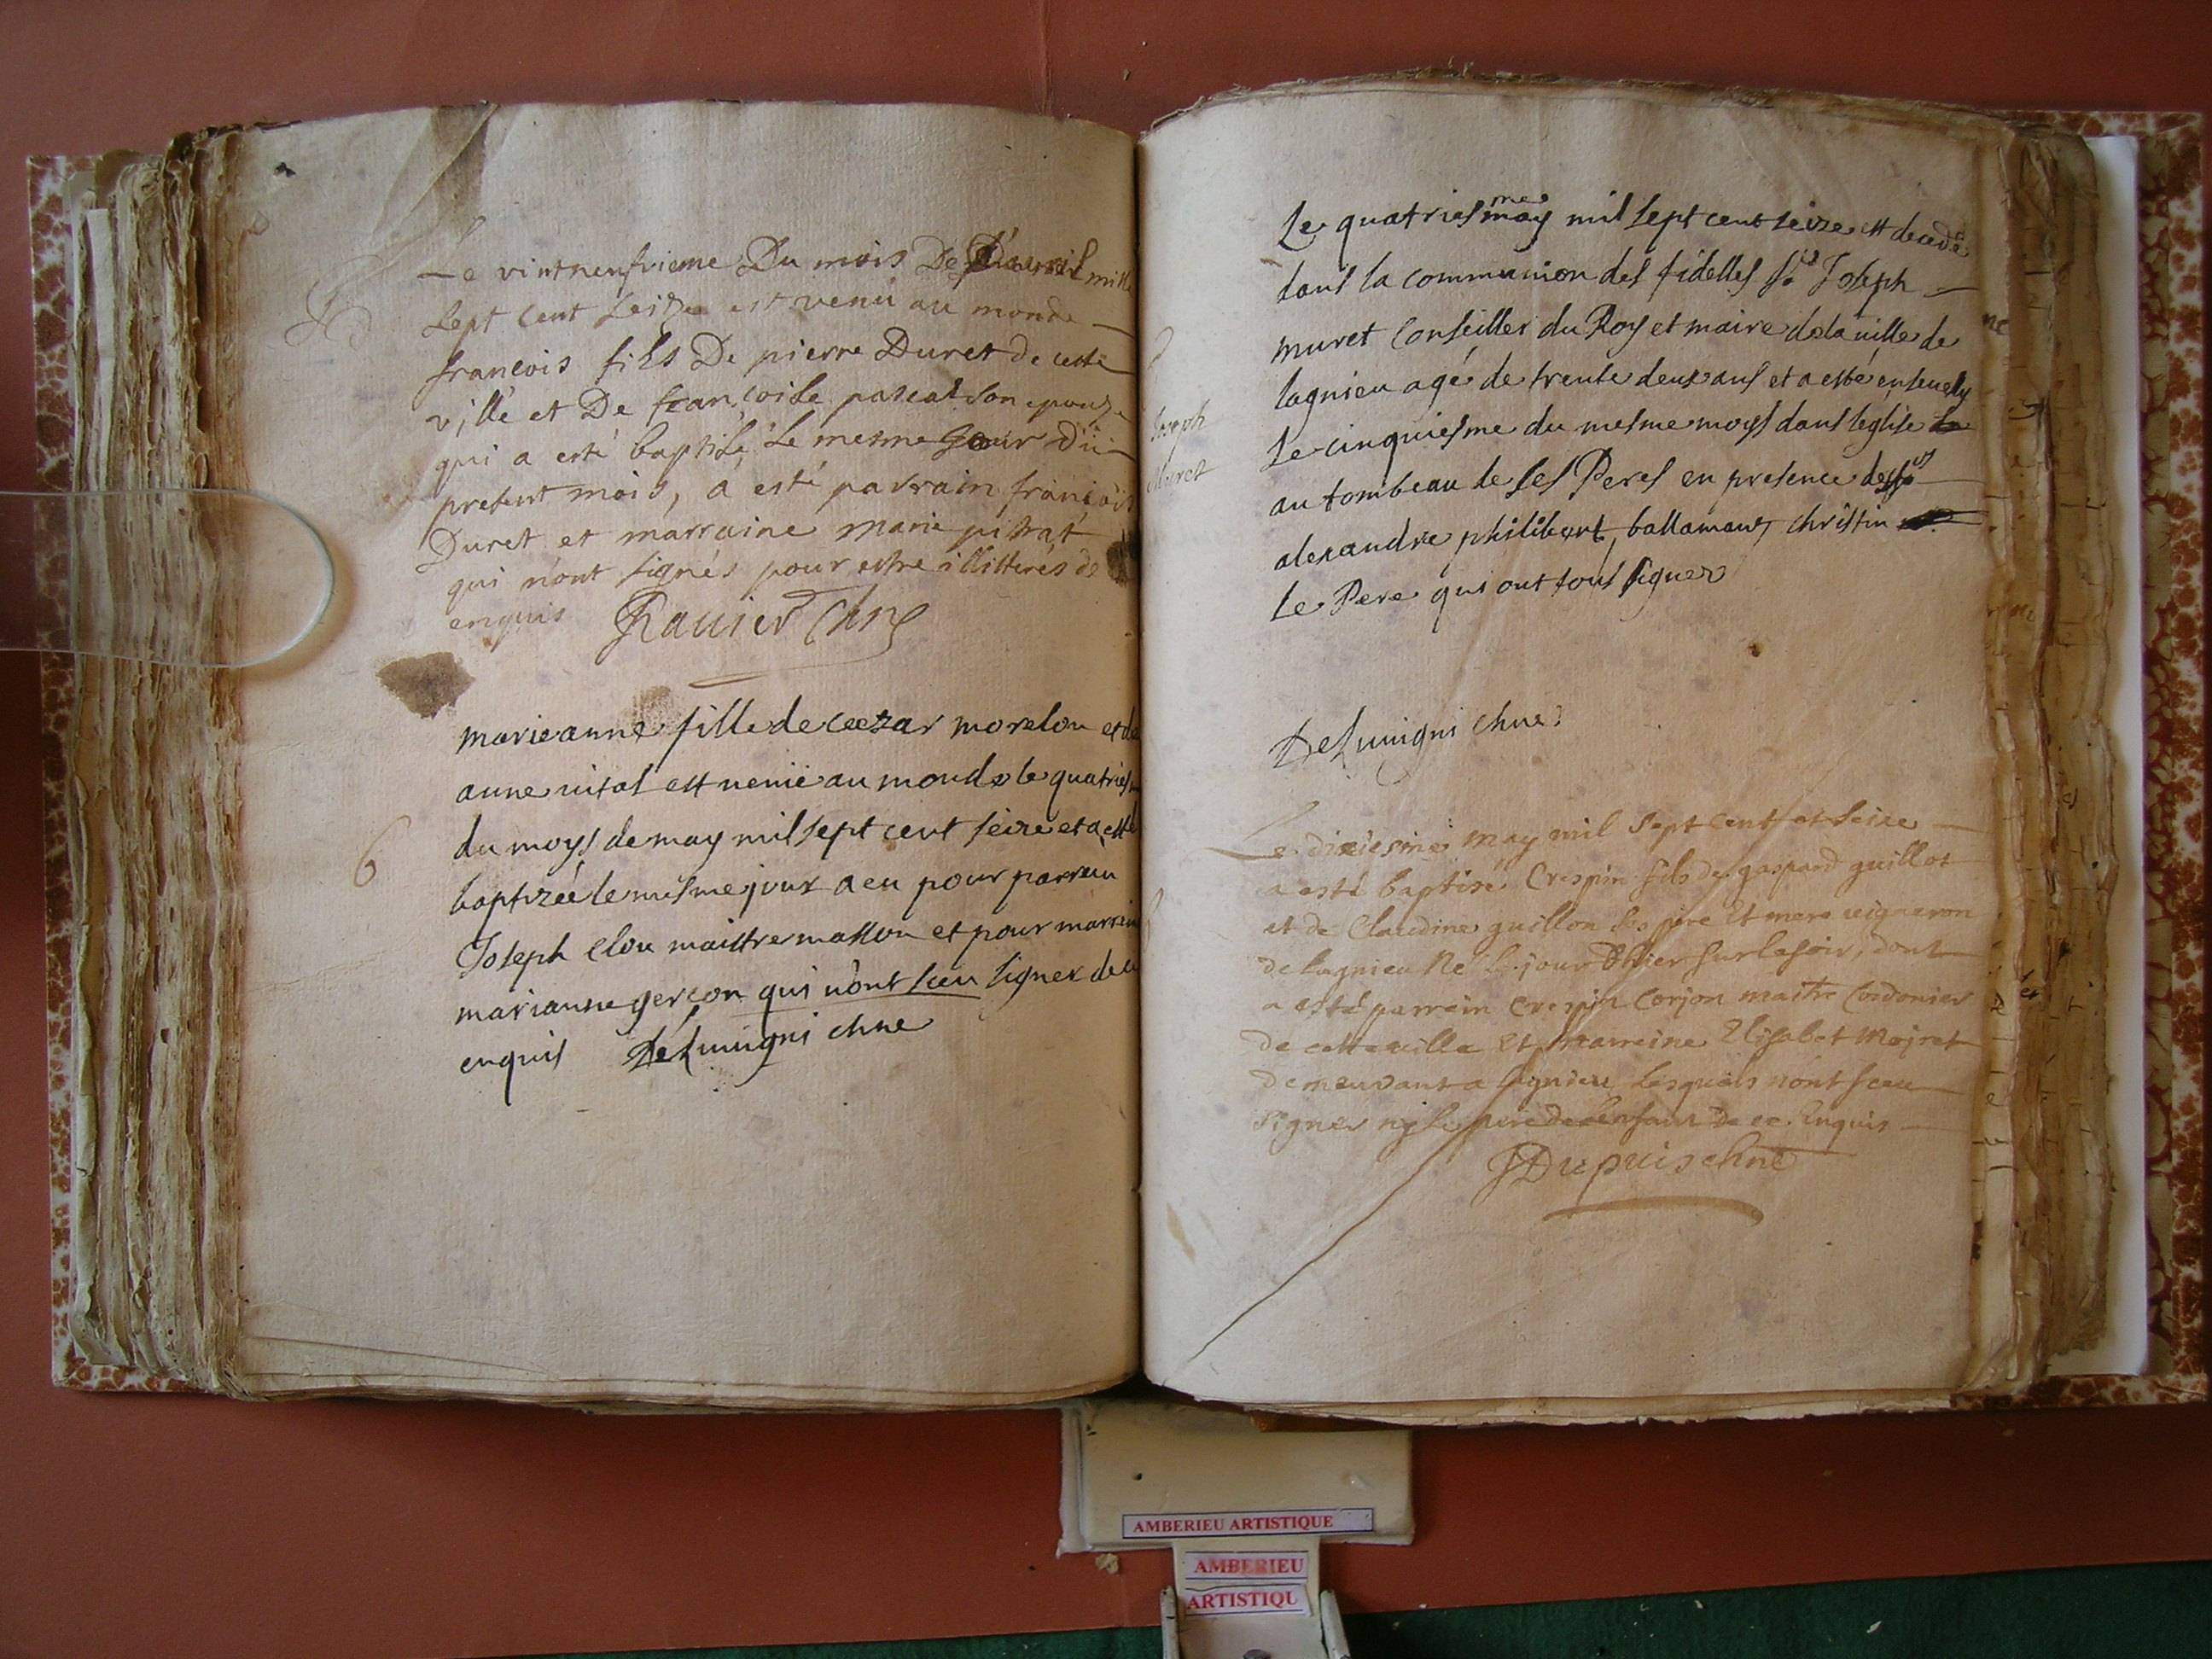 Le vintneufvieme Du mois De D'avril mille
sept cent seize est venu au monde
francois fils De pierre Duret de cette
ville et De francoise son epouse
qui a esté baptisé Le mesme Jour Du
present mois, a esté parrain francois
Duret et marraine Marie pitrat
qui n'ont signés pour estre illitterés de
enquis Ravier chne
marieanne fille de ceezar morelon et de
anne vital est venüe au monde le quatries
du moys de may mil sept cent seize et a esté
baptizée le mesme jour a eu pour parrein
Joseph clou maistre masson et pour marrein
marianne gerçon qui n'ont sceu signer de ce
enquis DeLuuigni chne
6
Joseph
Muret
Le quatriesme may mil sept cent seize est decedé
dans la communion des fidelles sr Joseph
muret Conseiller du Roy et maire de la ville de
lagnieu agé de trente deux ans et a esté ensevely
Le cinquiesme du mesme moys dans leglise
au tombeau de ses Peres en presence des srs
alexandre philibert, ballamant, christin
Le Pere qui ont tous signer
DeLuuigni chne
Le dixiesme may mil Sept Cent et Seize
a esté baptisé Crespin fils de gaspard guillot
et de Claudine guillon ses père Et mere vigneron
de lagnieu Né Le jour D'hier sur le soir, dont
a esté parrein Crespin Corjon maitre Cordonier
de cette ville Et marreine Elisabet Mojret
demeurant a lagnieu, Lesquels n'ont sceu
signer ny le père de l'enfant De ce Enquis
JDupuis chne
AMBERIEU ARTISTIQUE
AMBERIEU
ARTISTIQU